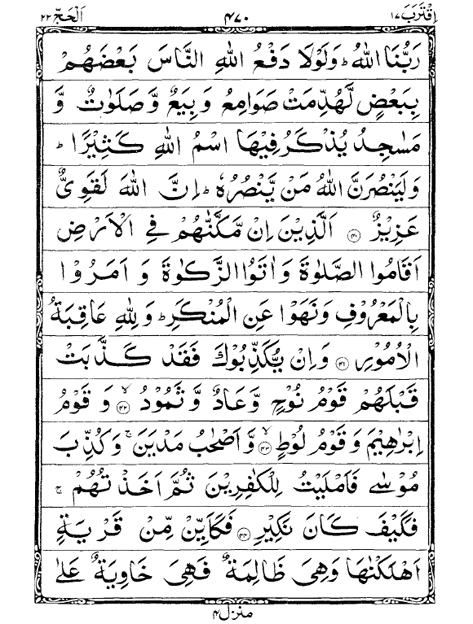 اِقْتَرَبَ ١٧ ٤٧٠ اَلْحَجّ ٢٢
رَبُّنَا اللهُ ؕ وَلَوْلَا دَفْعُ اللهِ النَّاسَ بَعْضَهُمْ
بِبَعْضٍ لَّهُدِّمَتْ صَوَامِعُ وَ بِيَعٌ وَّ صَلَوٰتٌ وَّ
مَسٰجِدُ يُذْكَرُ فِيْهَا اسْمُ اللهِ كَثِيْرًا ؕ
وَلَيَنْصُرَنَّ اللهُ مَنْ يَّنْصُرُهٗ ؕ اِنَّ اللهَ لَقَوِيٌّ
عَزِيْزٌ ۝٤٠ اَلَّذِيْنَ اِنْ مَّكَّنّٰهُمْ فِي الْاَرْضِ
اَقَامُوا الصَّلٰوةَ وَ اٰتَوُا الزَّكٰوةَ وَ اَمَرُوْا
بِالْمَعْرُوْفِ وَنَهَوْا عَنِ الْمُنْكَرِ ؕ وَ لِلّٰهِ عَاقِبَةُ
الْاُمُوْرِ ۝٤١ وَ اِنْ يُّكَذِّبُوْكَ فَقَدْ كَذَّبَتْ
قَبْلَهُمْ قَوْمُ نُوْحٍ وَّعَادٌ وَّ ثَمُوْدُ ۝٤٢ۙ وَ قَوْمُ
اِبْرٰهِيْمَ وَ قَوْمُ لُوْطٍ ۝٤٣ۙ وَّ اَصْحٰبُ مَدْيَنَ ۚ وَ كُذِّبَ
مُوْسٰى فَاَمْلَيْتُ لِلْكٰفِرِيْنَ ثُمَّ اَخَذْتُهُمْ ۚ
فَكَيْفَ كَانَ نَكِيْرِ ۝٤٤ فَكَاَيِّنْ مِّنْ قَرْيَةٍ
اَهْلَكْنٰهَا وَهِيَ ظَالِمَةٌ فَهِيَ خَاوِيَةٌ عَلٰى
منزل ٤